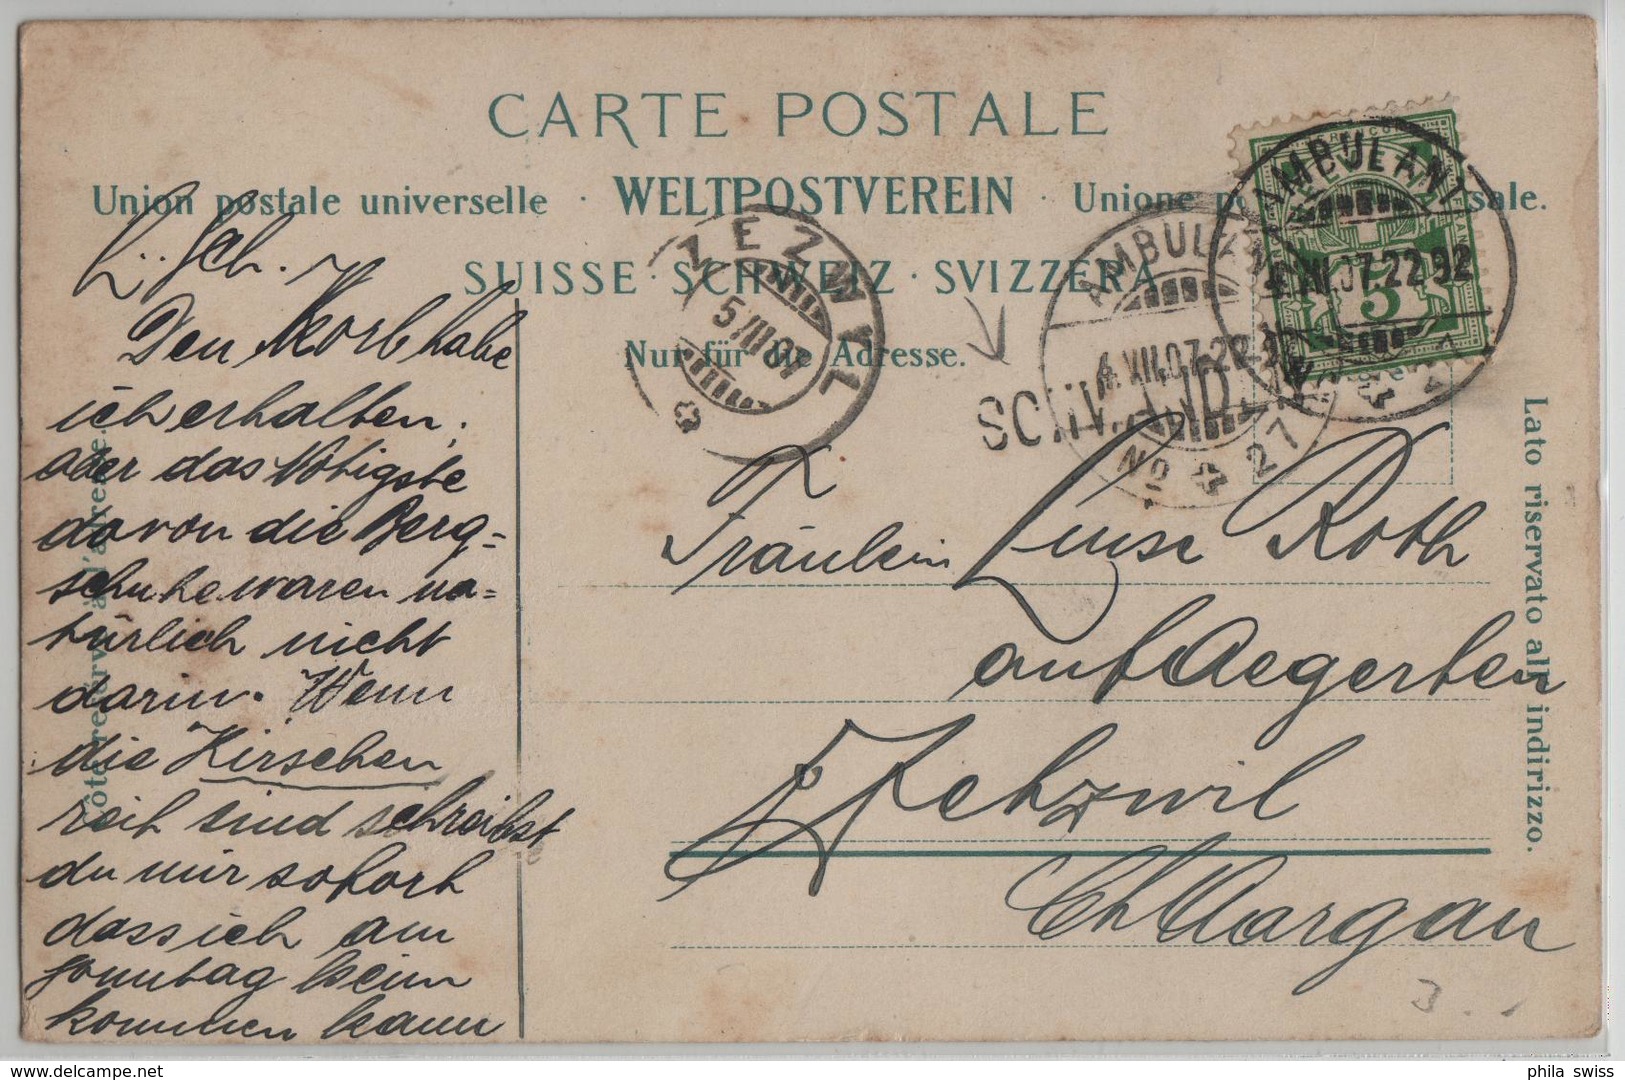 CARTE POSTALE
Union postale universelle · WELTPOSTVEREIN · Unione po sale.
SUISSE · SCHWEIZ · SVIZZERA
Nur für die Adresse.
L. Sch.
Den Korb habe
ich erhalten,
aber das Nötigste
davon die Berg=
schuhe waren na=
türlich nicht
darin. Wenn
die Kirschen
reif sind schreibst
du mir sofort
dass ich am
Sonntag heim
kommen kann
Fräulein Luise Roth
auf Aegerten
Zetzwil
Ct Aargau
ZEZWIL
5 VII 07
AMBULANT
4.VII.07.22
No 27
AMBULANT
4.VII.07.22 92
FRANCO
5
Côté réservé à l'adresse.
Lato riservato all' indirizzo.
3
delcampe.net
phila swiss